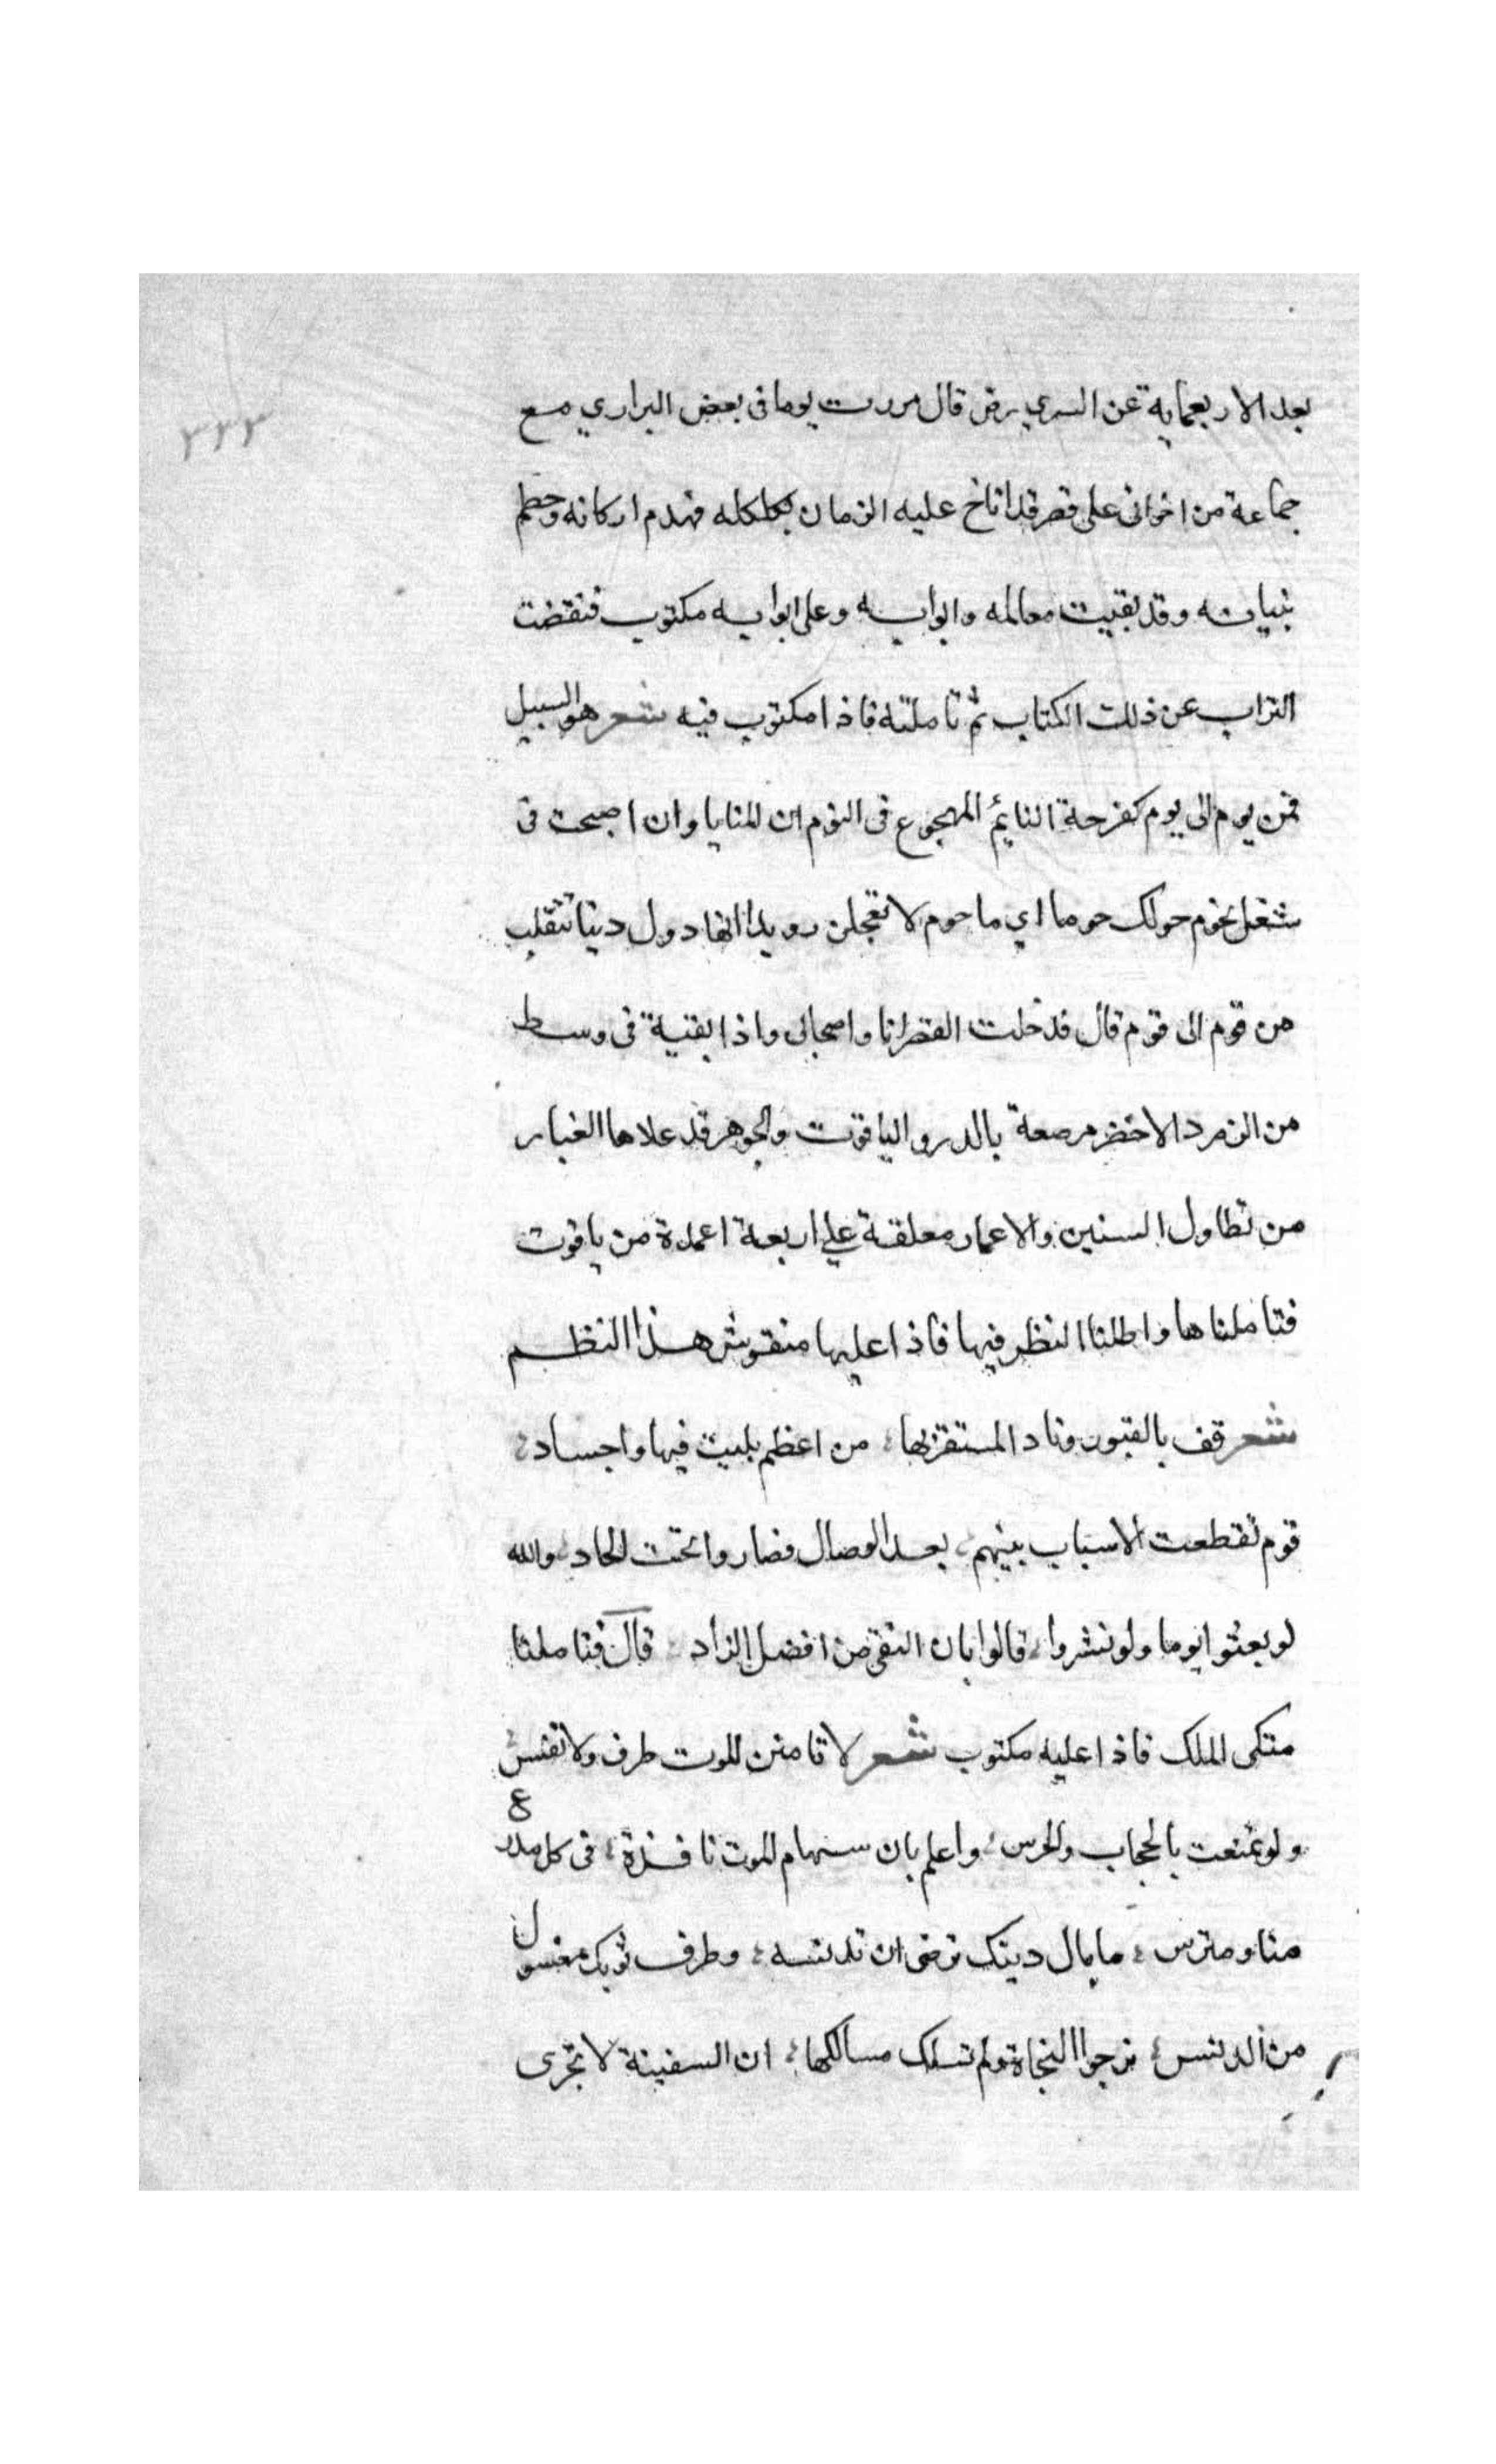 ٢٢٣
بعد الاربعماية عن السري رض قال مررت يوما فى بعض البراري مع
جماعة من اخوانى على قصر قد اناخ عليه الزمان بكلكله فهدم اركانه وحطم
بنيانه وقد بقيت معالمه وابوابه وعلى ابوابه مكتوب فنفضت
التراب عن ذلك الكتاب ثم تاملته فاذا مكتوب فيه شعر هو السبيل
فمن يوم الى يوم كفرحة النايم المهجوع فى النوم ان المنايا وان اصبحت فى
شغل تحوم حولك حوما اي ما حوم لا تعجلن رويدا انها دول دنيا تنقلب
من قوم الى قوم قال فدخلت القصر انا واصحابى واذا بقبة فى وسط
من الزمرد الاخضر مرصعة بالدر والياقوت والجوهر قد علاها الغبار
من تطاول السنين والاعمار معلقة على اربعة اعمدة من ياقوت
فتاملناها واطلنا النظر فيها فاذا عليها منقوش هذا النظم
شعر قف بالقبور وناد المستقر بها من اعظم بليت فيها واجساد
قوم تقطعت الاسباب بينهم بعد الوصال فصاروا تحت الحاد والله
لو بعثوا يوما ولو نشروا قالوا بان التقى من افضل الزاد قال فتاملنا
متكى الملك فاذا عليه مكتوب شعر لا تامنن الموت طرف ولا نفس
ولو تمنعت بالحجاب والحرس واعلم بان سهام الموت نافذة فى كل مدرع
منا ومترس ما بال دينك ترضى ان تدنسه وطرف ثوبك مغسول
من الدنس ترجوا النجاة ولم تسلك مسالكها ان السفينة لا تجرى